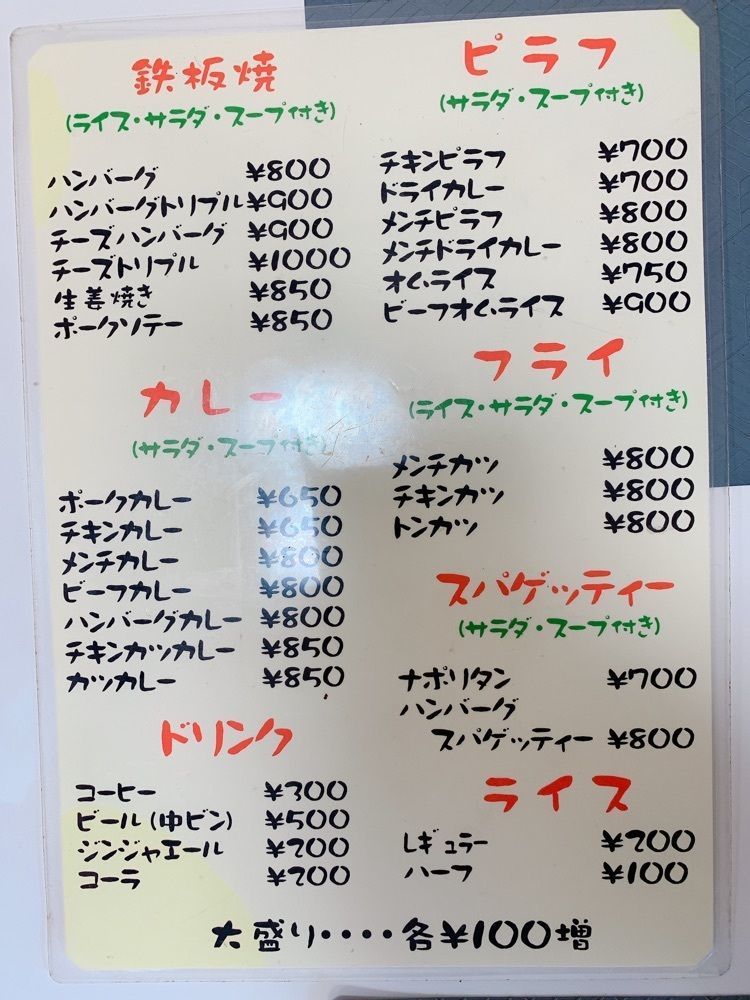 鉄板焼
(ライス・サラダ・スープ付き)
ハンバーグ ¥800
ハンバーグトリプル ¥900
チーズハンバーグ ¥900
チーズトリプル ¥1000
生姜焼き ¥850
ポークソテー ¥850
カレー
(サラダ・スープ付き)
ポークカレー ¥650
チキンカレー ¥650
メンチカレー ¥800
ビーフカレー ¥800
ハンバーグカレー ¥800
チキンカツカレー ¥850
カツカレー ¥850
ドリンク
コーヒー ¥300
ビール(中ビン) ¥500
ジンジャエール ¥200
コーラ ¥200
ピラフ
(サラダ・スープ付き)
チキンピラフ ¥700
ドライカレー ¥700
メンチピラフ ¥800
メンチドライカレー ¥800
オムライス ¥750
ビーフオムライス ¥900
フライ
(ライス・サラダ・スープ付き)
メンチカツ ¥800
チキンカツ ¥800
トンカツ ¥800
スパゲッティー
(サラダ・スープ付き)
ナポリタン ¥700
ハンバーグ
スパゲッティー ¥800
ライス
レギュラー ¥200
ハーフ ¥100
大盛り・・・・各¥100増